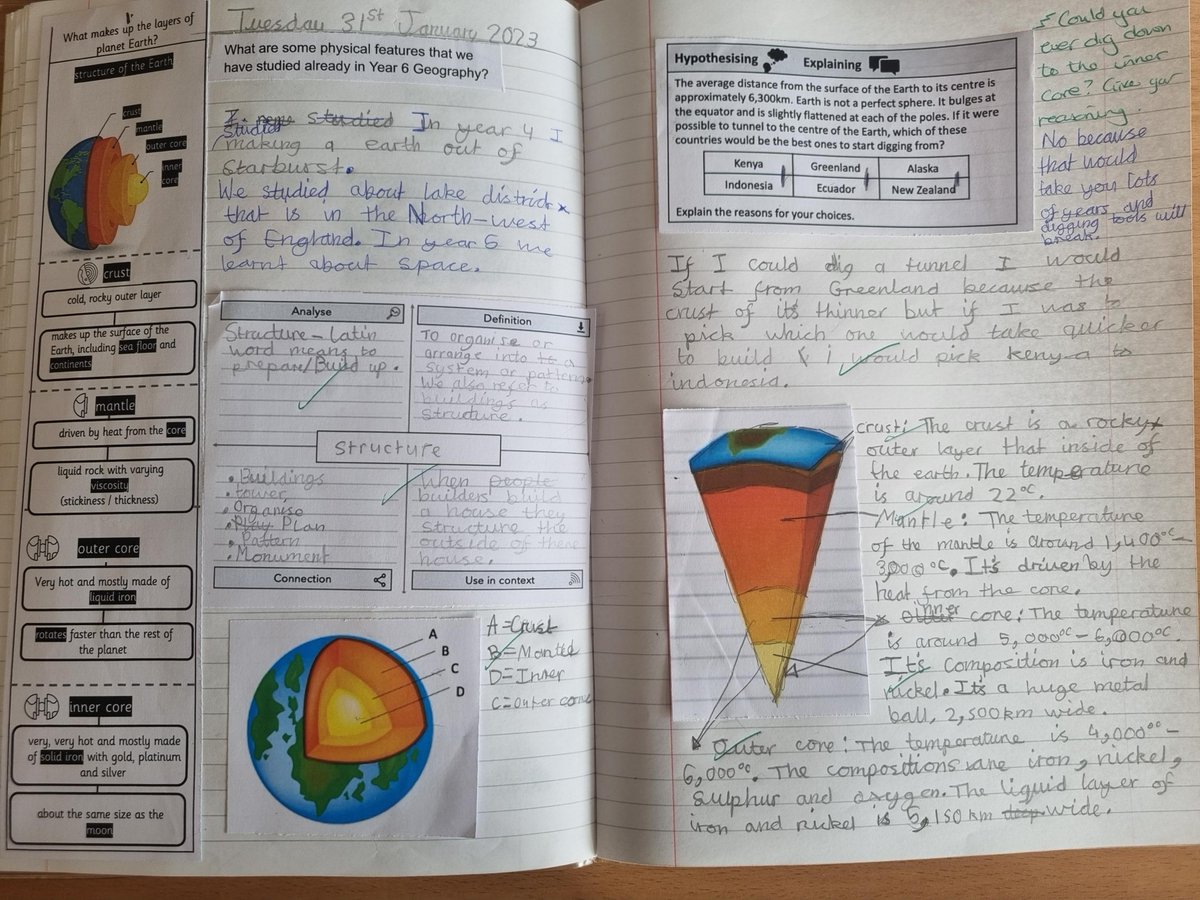 What makes up the layers of
planet Earth?
structure of the Earth
crust
mantle
outer core
inner
core
crust
cold, rocky outer layer
makes up the surface of the
Earth, including sea floor and
continents
mantle
driven by heat from the core
liquid rock with varying
viscosity
(stickiness / thickness)
outer core
Very hot and mostly made of
liquid iron
rotates faster than the rest of
the planet
inner core
very, very hot and mostly made
of solid iron with gold, platinum
and silver
about the same size as the
moon
Tuesday 31st January 2023
What are some physical features that we
have studied already in Year 6 Geography?
studied In year 4 I
studied
making a earth out of
starburst.
We studied about lake district
that is in the North-west
of England. In year 5 we
learnt about space.
Analyse
Structure - Latin
word means to
prepare/Build up.
Definition
To organise or
arrange into to a
system or pattern.
We also refer to
buildings as
structure.
Structure
• Buildings
• tower
• Organise
• Play Plan
• Pattern
• Monument
Connection
When people
builders build
a house they
structure the
outside of there
house.
Use in context
A
B
C
D
A = Crust
B = Manted
D = Inner
C = outer corne
Hypothesising
Explaining
The average distance from the surface of the Earth to its centre is
approximately 6,300km. Earth is not a perfect sphere. It bulges at
the equator and is slightly flattened at each of the poles. If it were
possible to tunnel to the centre of the Earth, which of these
countries would be the best ones to start digging from?
Kenya Greenland Alaska
Indonesia Ecuador New Zealand
Explain the reasons for your choices.
Could you
ever dig down
to the inner
core? Give your
reasoning
No because
that would
take you lots
of years and
digging tools will
break.
If I could dig a tunnel I would
start from Greenland because the
crust of its thinner but if I was to
pick which one would take quicker
to build i would pick kenya to
indonesia.
crust: The crust is a rocky
outer layer that inside of
the earth. The temperature
is around 22°C.
Mantle: The temperature
of the mantle is around 1,400°C-
3,000°C. It's driven by the
heat from the core.
inner core: The temperature
is around 5,000°C-6,000°C.
It's composition is iron and
nickel. It's a huge metal
ball, 2,500km wide.
Outer core: The temperature is 4,000°C-
6,000°C. The compositions are iron, nickel,
sulphur and oxygen. The liquid layer of
iron and nickel is 5,150 km deep wide.